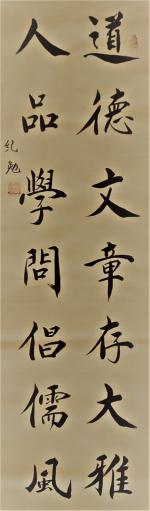 道德文章存大雅
人品學問倡儒風
紀勉